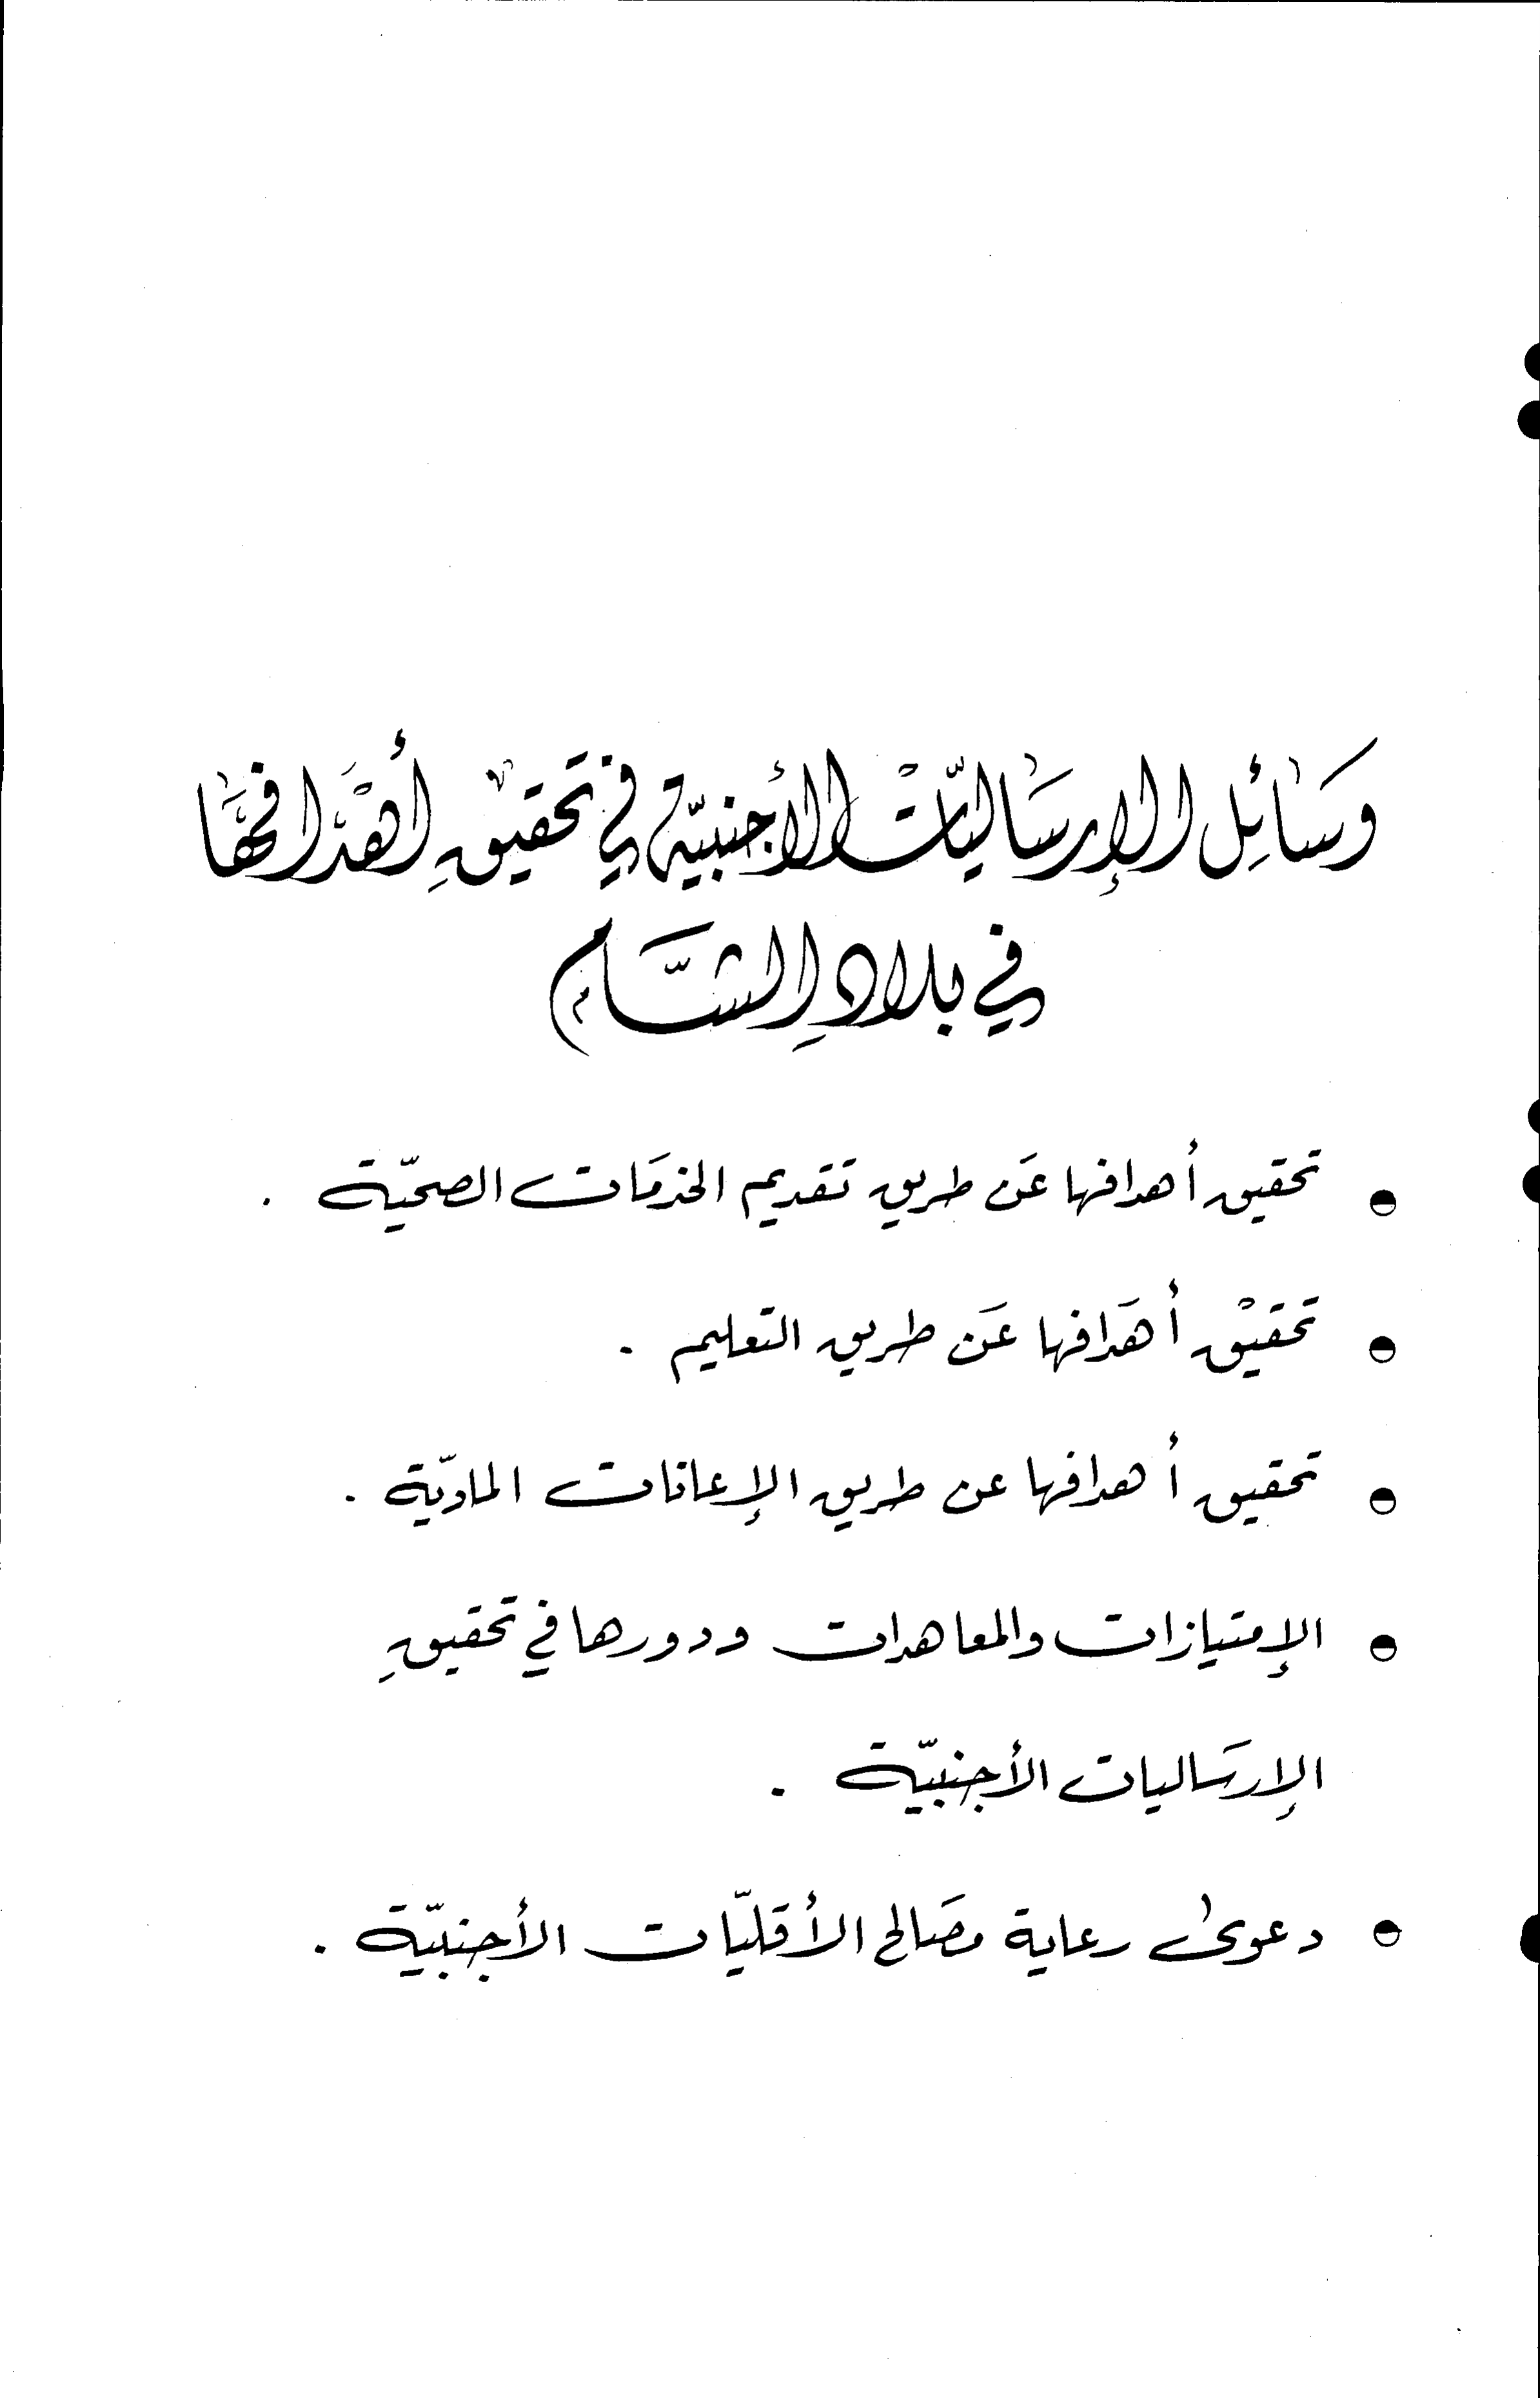 وَسَائِل الإرسَاليّاتْ الأجنبيّة في تحقيقِ أهْدَافهَا
في بلادِ الشَّام
● تحقيق أهدافها عَن طريق تقديم الخدمَات الصحيّة .
● تحقيْق أهدَافها عَن طريق التعليم .
● تحقيق أهدافها عن طريق الإعانات الماديّة .
● الإمتيازات والمعاهدات ودورها في تحقيقِ
الإرسَاليات الأجنبيّة .
● دعوى رعاية مصَالح الأقليّات الأجنبيّة .